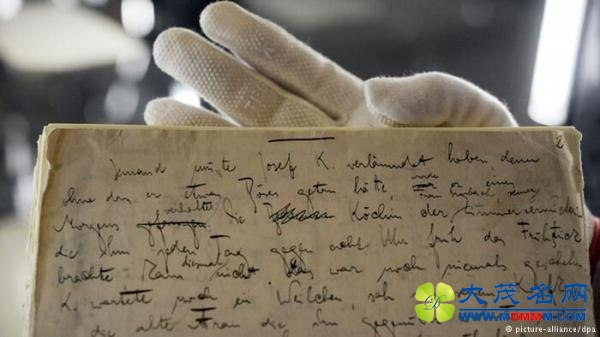 2
Jemand musste Josef K. verläumdet haben denn
ohne dass er etwas Böses getan hätte wurde er eines
Morgens verhaftet Die Köchin der Zimmervermieterin
die ihm jeden Tag gegen acht Uhr früh das Frühstück
brachte kam diesmal nicht das war noch niemals geschehn
K. wartete noch ein Weilchen sah
die alte Frau die ihm gegenüber
大茂名网
WWW.MDMMM.COM
© picture-alliance/dpa